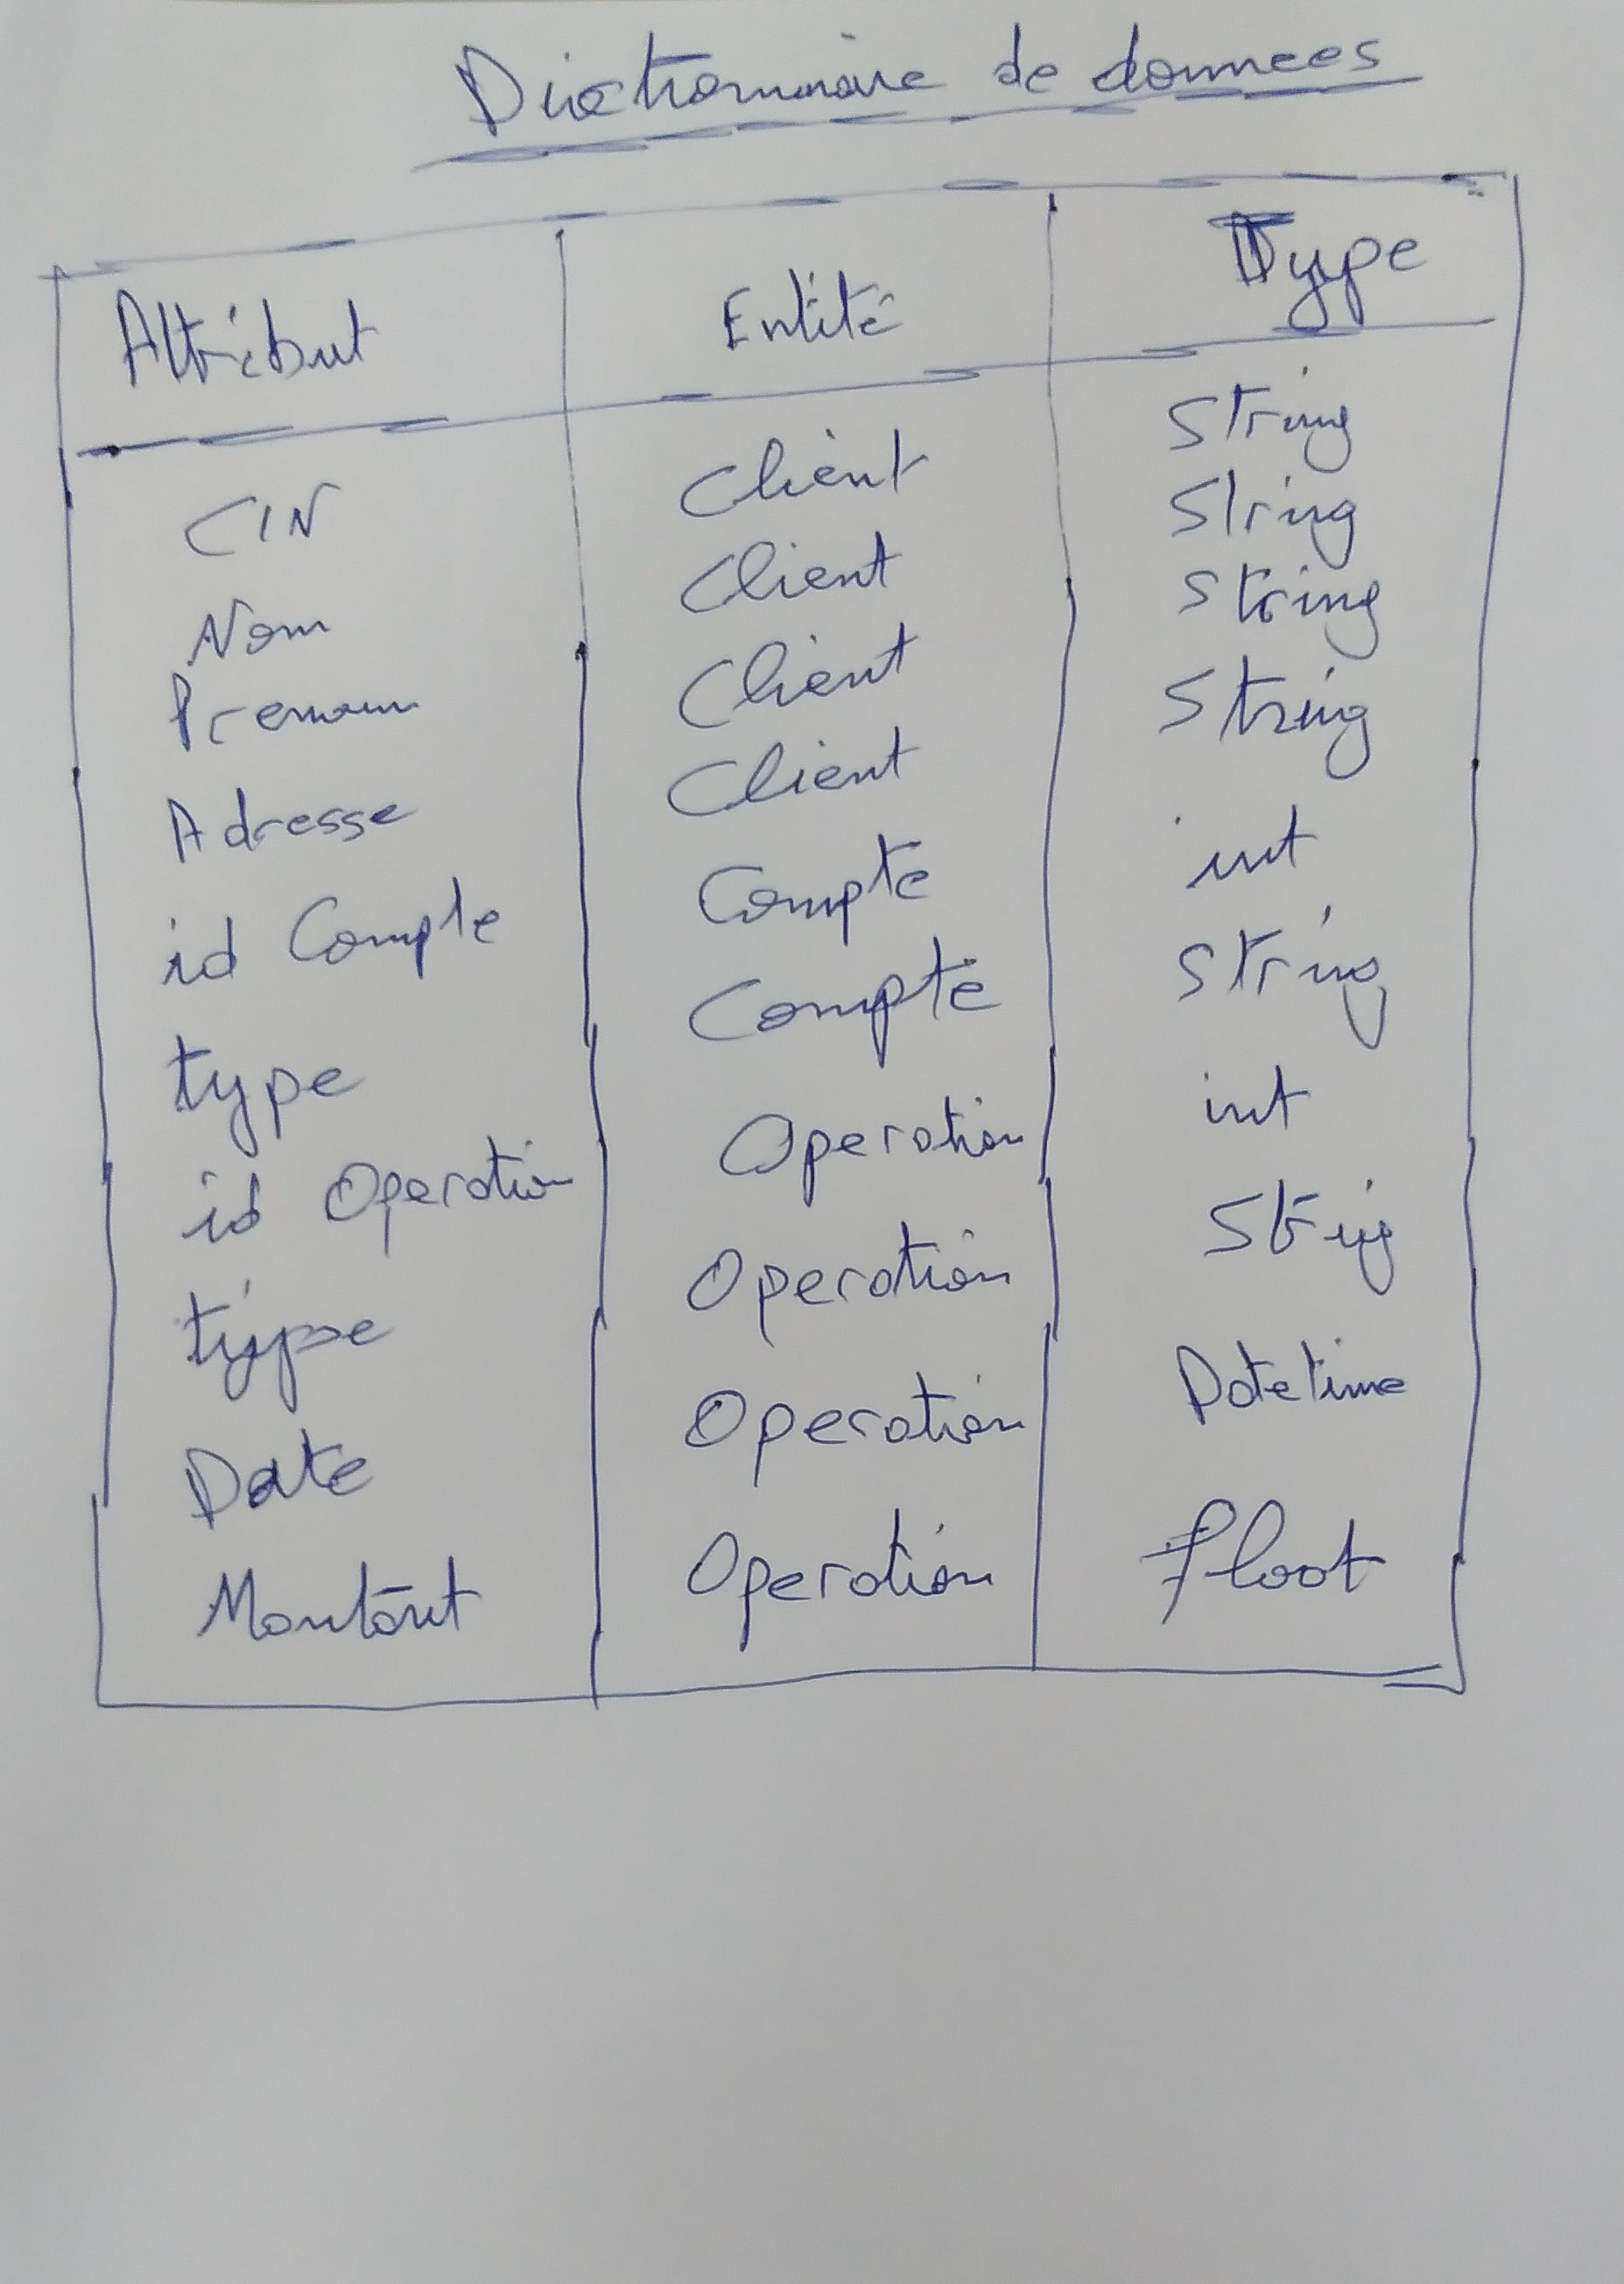 Dictionnaire de donnees
Attribut Entité Type
CIN Client String
Nom Client String
Prenom Client String
Adresse Client String
id Compte Compte int
type Compte String
id Operation Operation int
type Operation String
Date Operation Datetime
Montant Operation float